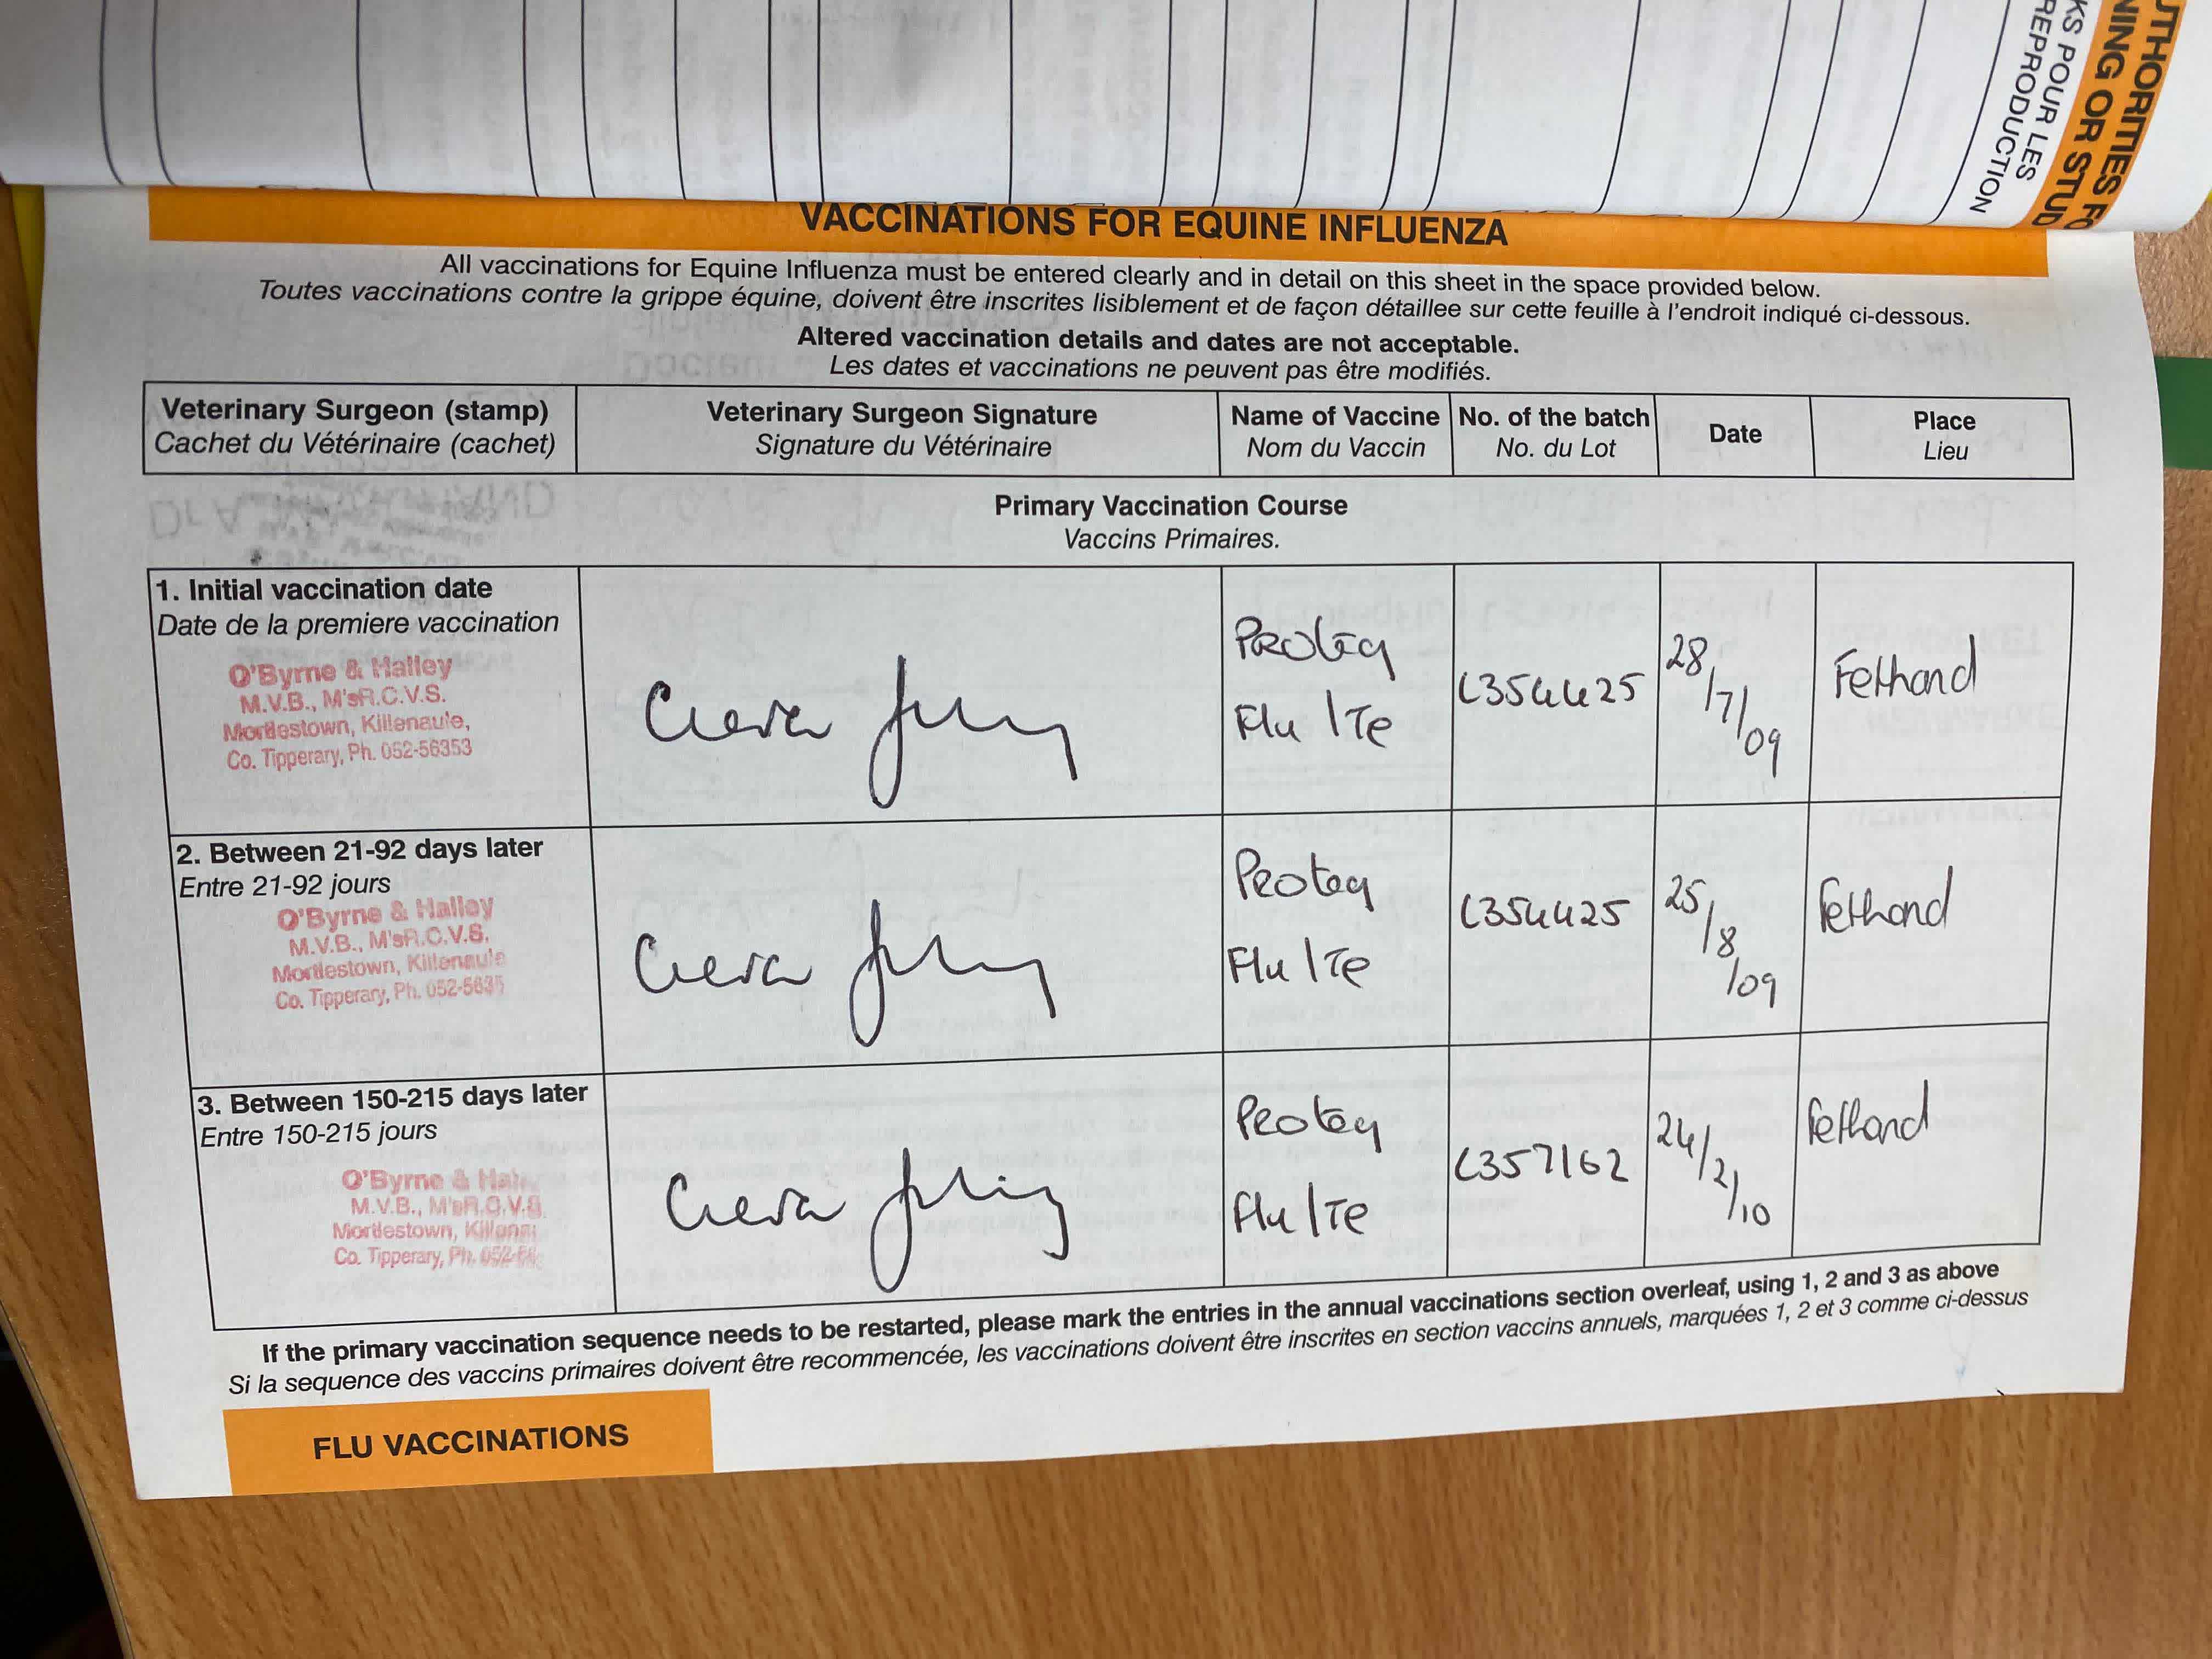 UTHORITIES FO
NING OR STUD
KS POUR LES
REPRODUCTION
VACCINATIONS FOR EQUINE INFLUENZA
All vaccinations for Equine Influenza must be entered clearly and in detail on this sheet in the space provided below.
Toutes vaccinations contre la grippe équine, doivent être inscrites lisiblement et de façon détaillee sur cette feuille à l'endroit indiqué ci-dessous.
Altered vaccination details and dates are not acceptable.
Les dates et vaccinations ne peuvent pas être modifiés.
Veterinary Surgeon (stamp)
Cachet du Vétérinaire (cachet)
Veterinary Surgeon Signature
Signature du Vétérinaire
Name of Vaccine
Nom du Vaccin
No. of the batch
No. du Lot
Date
Place
Lieu
Primary Vaccination Course
Vaccins Primaires.
1. Initial vaccination date
Date de la premiere vaccination
O'Byrne & Halley
M.V.B., M'sR.C.V.S.
Mortlestown, Killenaule,
Co. Tipperary, Ph. 052-56353
Proteq
Flu/Te
L354425
28/7/09
Fethard
2. Between 21-92 days later
Entre 21-92 jours
O'Byrne & Halley
M.V.B., M'sR.C.V.S.
Mortlestown, Killenaule
Co. Tipperary, Ph. 052-5635
Proteq
Flu/Te
L354425
25/8/09
Fethard
3. Between 150-215 days later
Entre 150-215 jours
O'Byrne & Hal
M.V.B., M'sR.C.V.S.
Mortlestown, Killena
Co. Tipperary, Ph. 052-56
Proteq
Flu/Te
L357162
24/2/10
Fethard
If the primary vaccination sequence needs to be restarted, please mark the entries in the annual vaccinations section overleaf, using 1, 2 and 3 as above
Si la sequence des vaccins primaires doivent être recommencée, les vaccinations doivent être inscrites en section vaccins annuels, marquées 1, 2 et 3 comme ci-dessus
FLU VACCINATIONS